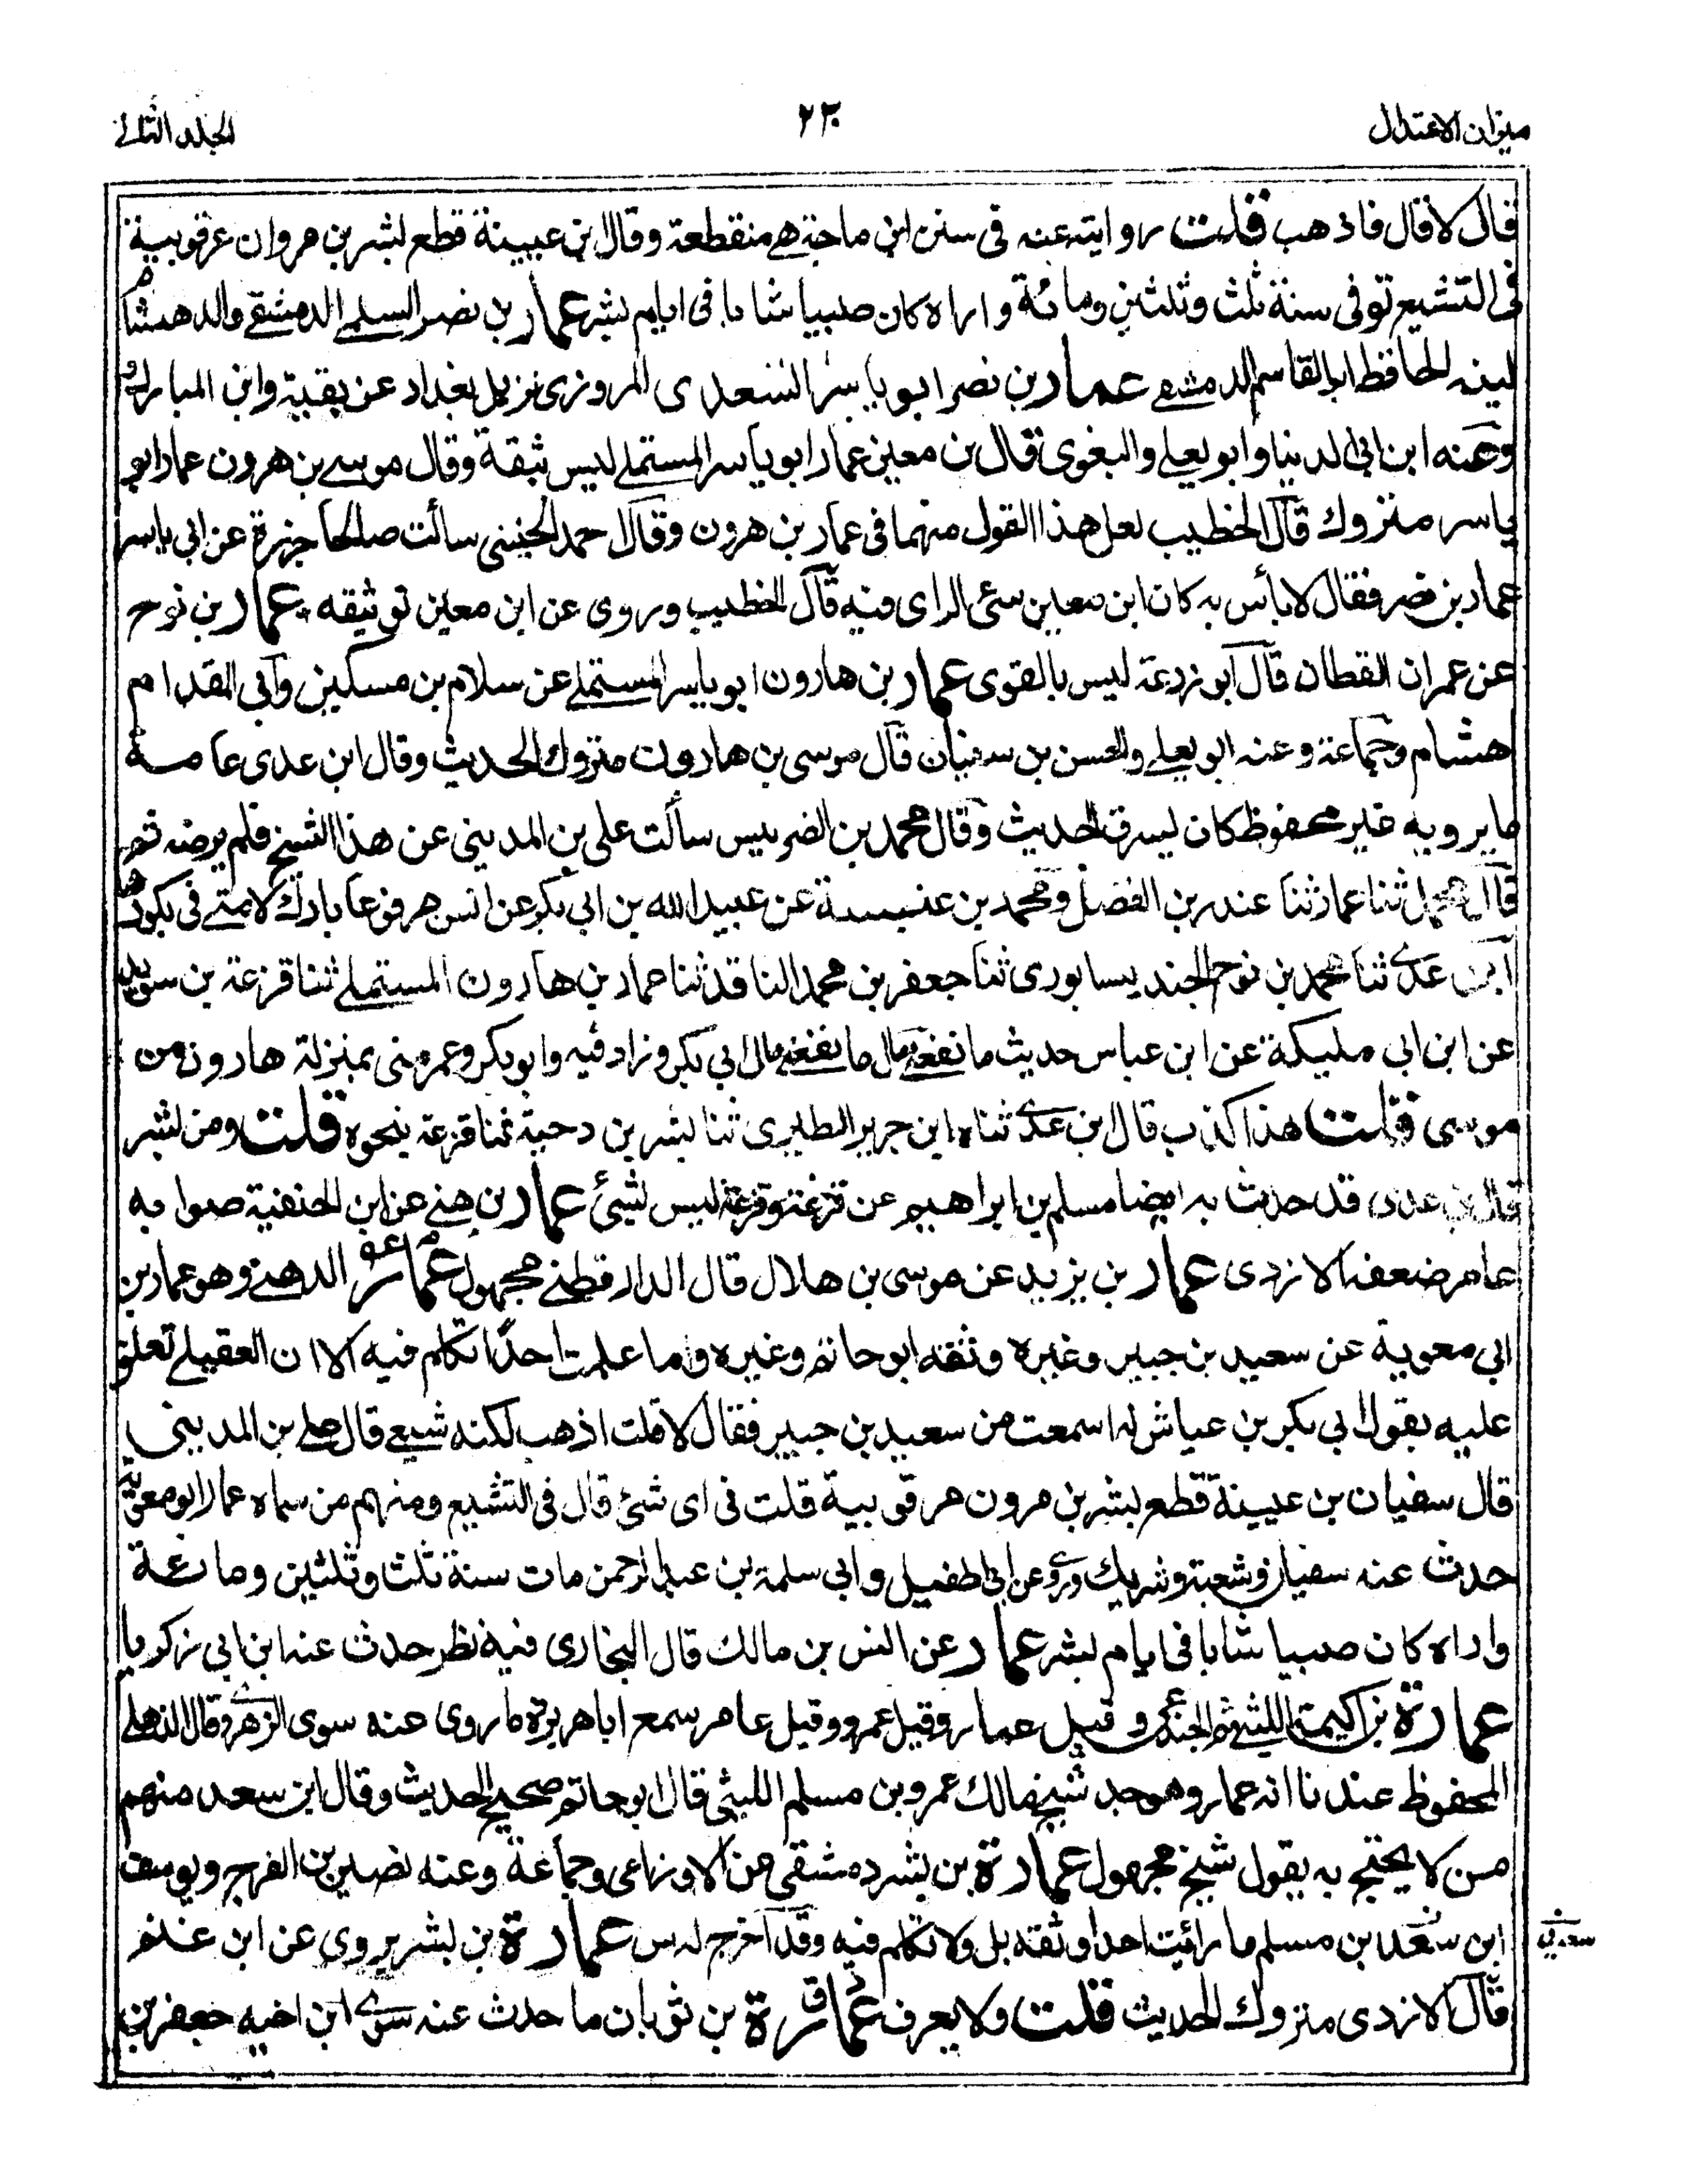 ميزان الاعتدال
٢٣٠
المجلد الثاني
قال لا قال فاذهب قلت روايته عنه في سنن ابن ماجة هي منقطعة وقال ابن عيينة قطع بشر بن مروان عرقوبيه
في التشيع توفي سنة ثلث وثلثين ومائة واراه كان صبيا شابا في ايام بشر عمار بن نصر السلمي الدمشقي والد هشام
لينه الحافظ ابو القاسم الدمشقي عمار بن نصر ابو ياسر السعدي المروزي نزيل بغداد عن بقية وابن المبارك
وعنه ابن ابي الدنيا وابو يعلى والبغوي قال بن معين عمار ابو ياسر المستملي ليس بثقة وقال موسى بن هرون عمار ابو
ياسر متروك قال الخطيب لعل هذا القول منهما في عمار بن هرون وقال احمد الحنيني سألت صالحا جزرة عن ابي ياسر
عمار بن نصر فقال لا بأس به كان ابن معين سئ الراى فيه قال الخطيب وروى عن ابن معين توثيقه عمار بن نوح
عن عمران القطان قال ابو زرعة ليس بالقوى عمار بن هارون ابو ياسر المستملي عن سلام بن مسكين وابي المقدام
هشام وجماعة وعنه ابو يعلى والحسن بن سفيان قال موسى بن هارون متروك الحديث وقال ابن عدى عامة
ما يرويه غير محفوظ كان يسرق الحديث وقال محمد بن الضريس سألت على بن المديني عن هذا الشيخ فلم يرضه ثم
قال محمد ثنا عمار ثنا عندر بن الفضل ومحمد بن عنبسة عن عبيد الله بن ابي بكر عن انس مرفوعا بارك لامتي في بكورها
ابن عدى ثنا محمد بن نوح الجنديسابوري ثنا جعفر بن محمد الناقد ثنا عمار بن هارون المستملي ثنا قزعة بن سويد
عن ابن ابي مليكة عن ابن عباس حديث ما نفعني مال ما نفعني مال ابي بكر وزاد فيه وابو بكر وعمر منى بمنزلة هارون من
موسى قلت هذا كذب قال ابن عدى ثناه ابن جرير الطبري ثنا بشر بن دحية ثنا قزعة بنحوه قلت ومن بشر
قال ابن عدى قد حدث به ايضا مسلم بن ابراهيم عن قزعة وقزعة ليس بشئ عمار بن هنى عن ابن الحنفية صوابه
عامر ضعفه الازدى عمار بن يزيد عن موسى بن هلال قال الدارقطني مجهول عمار م عو الدهني وهو عمار بن
ابي معوية عن سعيد بن جبير وغيره وثقه ابو حاتم وغيره وما علمت احدا تكلم فيه الا ان العقيلي تعلق
عليه بقول ابي بكر بن عياش له اسمعت من سعيد بن جبير فقال لا قلت اذهب لكنه شيعي قال على بن المديني
قال سفيان بن عيينة قطع بشر بن مرون عرقوبية قلت في اى شئ قال في التشيع ومنهم من سماه عمار ابو معوية
حدث عنه سفيان وشعبة وشريك وروى عن ابي طفيل وابي سلمة بن عبد الرحمن مات سنة ثلث وثلثين ومائة
واراه كان صبيا شابا في ايام بشر عمار عن انس بن مالك قال البخاري فيه نظر حدث عنه ابن ابي زكريا
عمارة بن اكيمة الليثي ثم الجندعي وقيل عمار وقيل عمرو وقيل عامر سمع ابا هريرة ما روى عنه سوى الزهرى قال الذهلي
المحفوظ عندنا انه عمار وهو جد شيخ مالك عمرو بن مسلم الليثي قال ابو حاتم صحيح الحديث وقال ابن سعد منهم
من لا يحتج به يقول شيخ مجهول عمارة بن بشر دمشقي عن الاوزاعي وجماعة وعنه نصير بن الفرج ويوسف
ابن سعد بن مسلم ما رأيت احدا وثقه بل ولا تكلم فيه وقد اخرج له س عمارة بن بشر يروى عن ابن غنم
قال الازدى متروك الحديث قلت ولا يعرف عمارة ق بن ثوبان ما حدث عنه سوى ابن اخيه جعفر بن